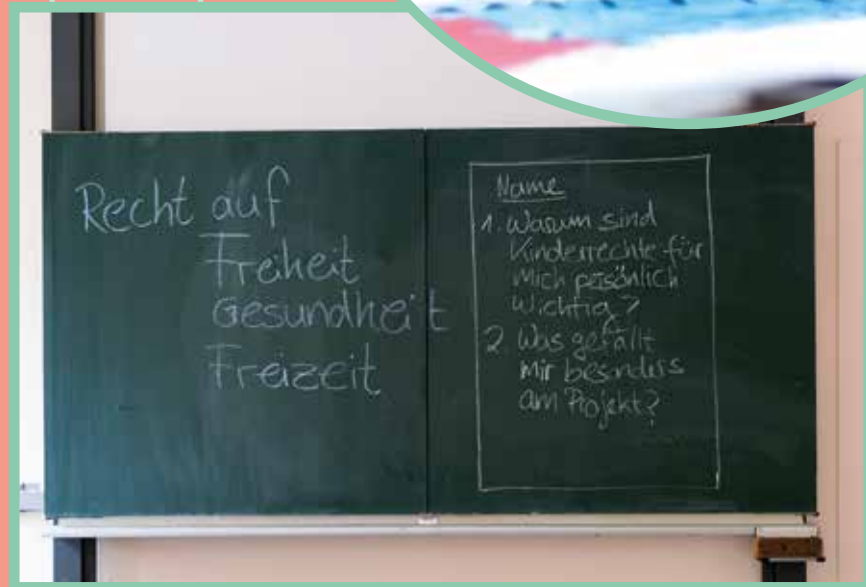 Recht auf
Freiheit
Gesundheit
Freizeit
Name
1. Warum sind
Kinderrechte für
Mich persönlich
Wichtig?
2. Was gefällt
mir besonders
am Projekt?